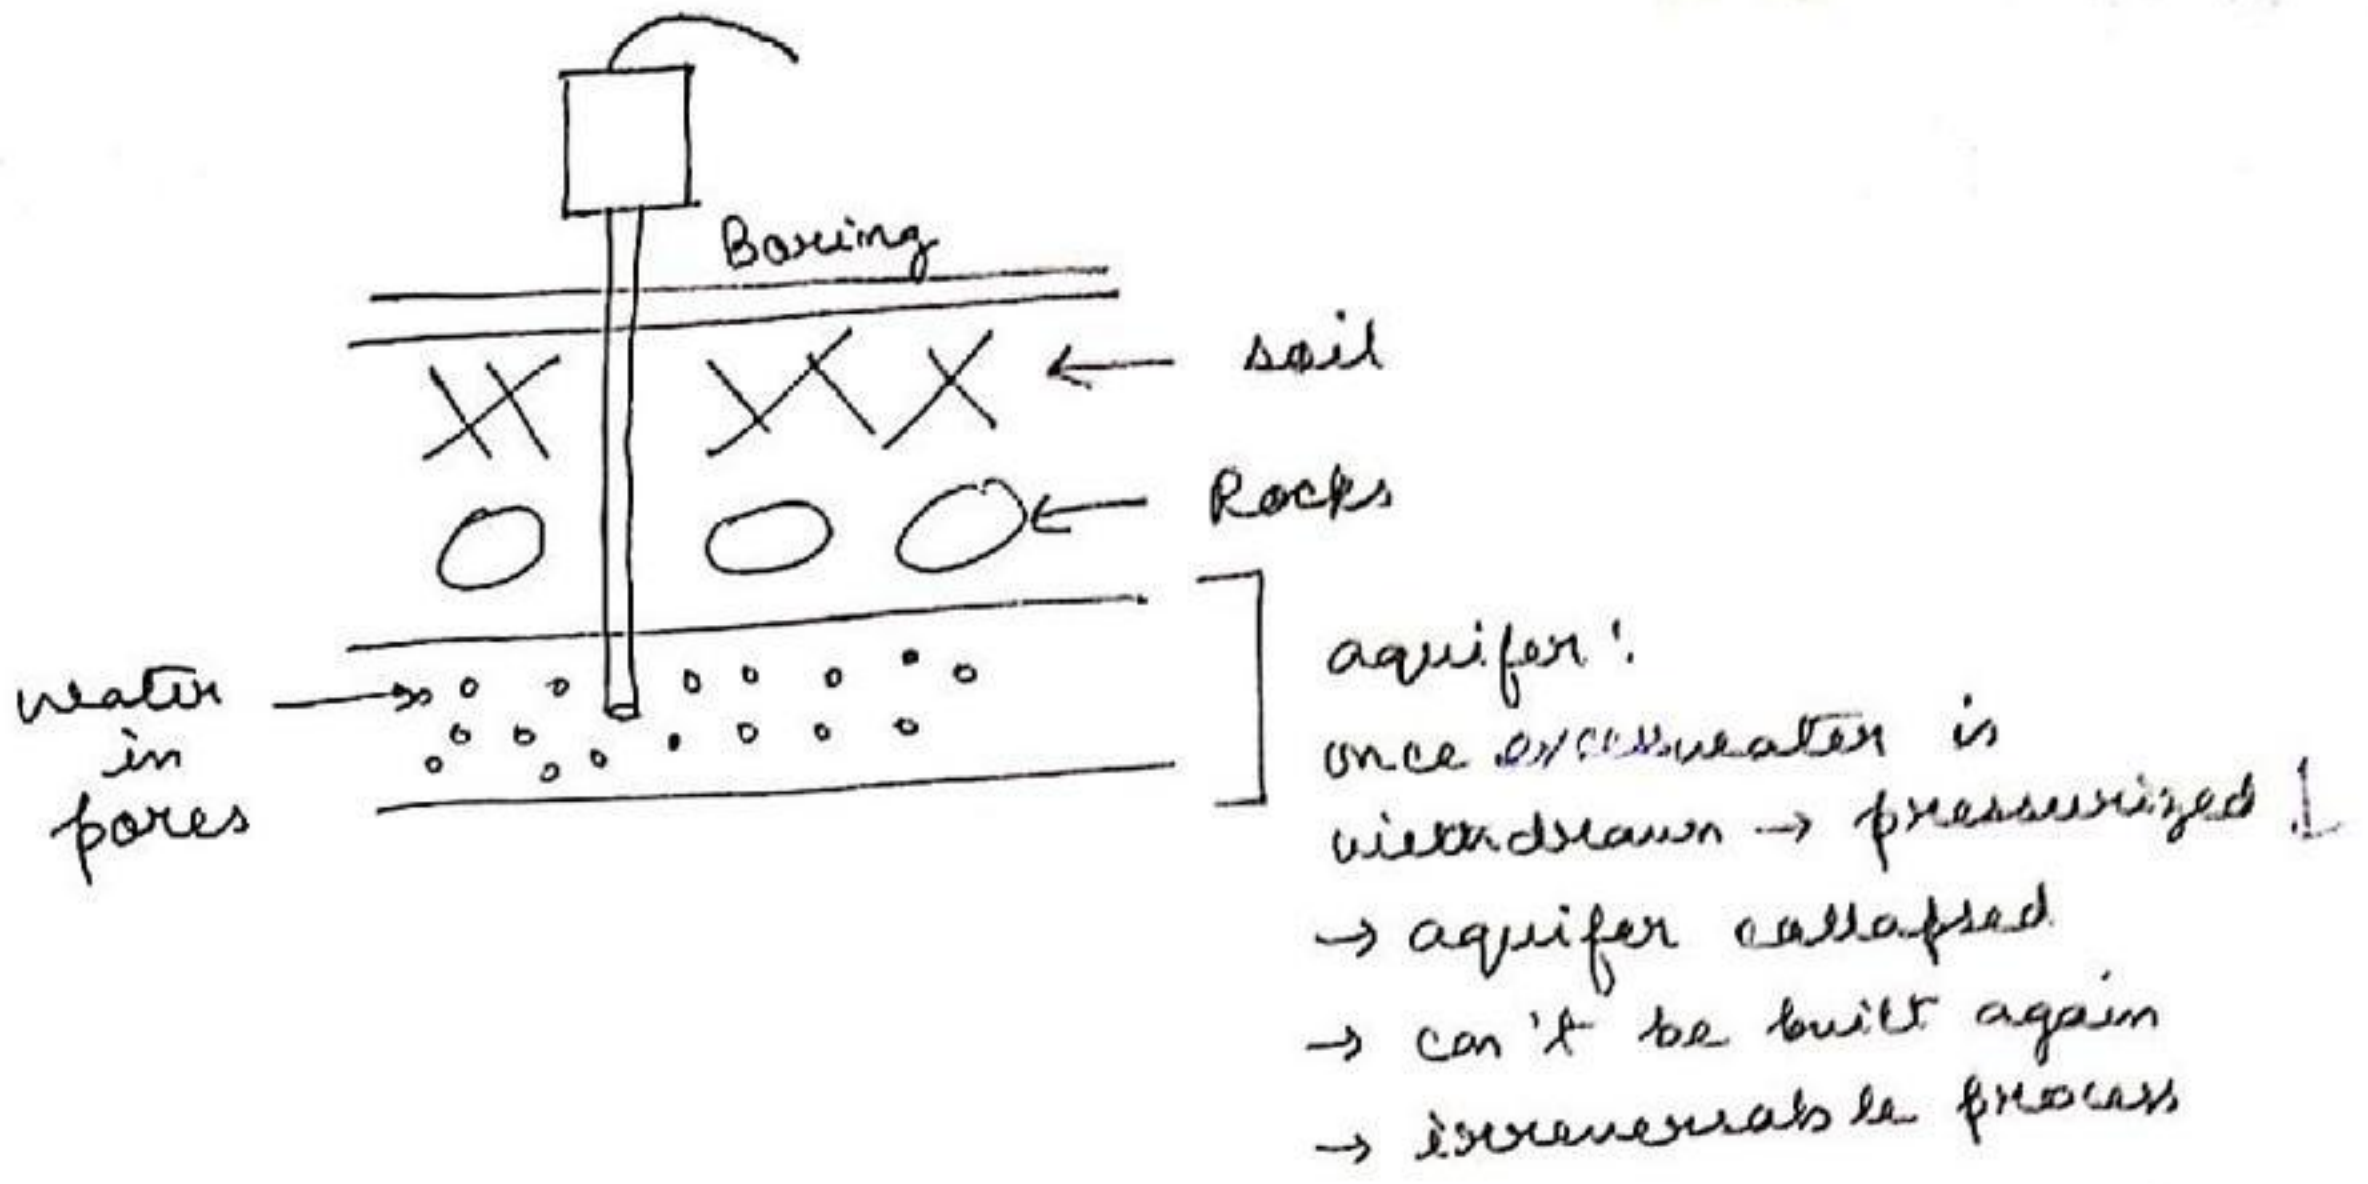 Boring
soil
Rocks
water
in
pores
aquifer :
once excess water is
withdrawn → pressurized ↓
→ aquifer collapsed
→ can't be built again
→ irreversable process